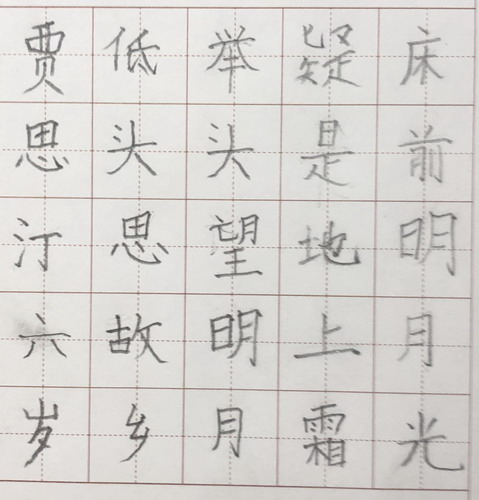 床前明月光
疑是地上霜
举头望明月
低头思故乡
贾思汀六岁